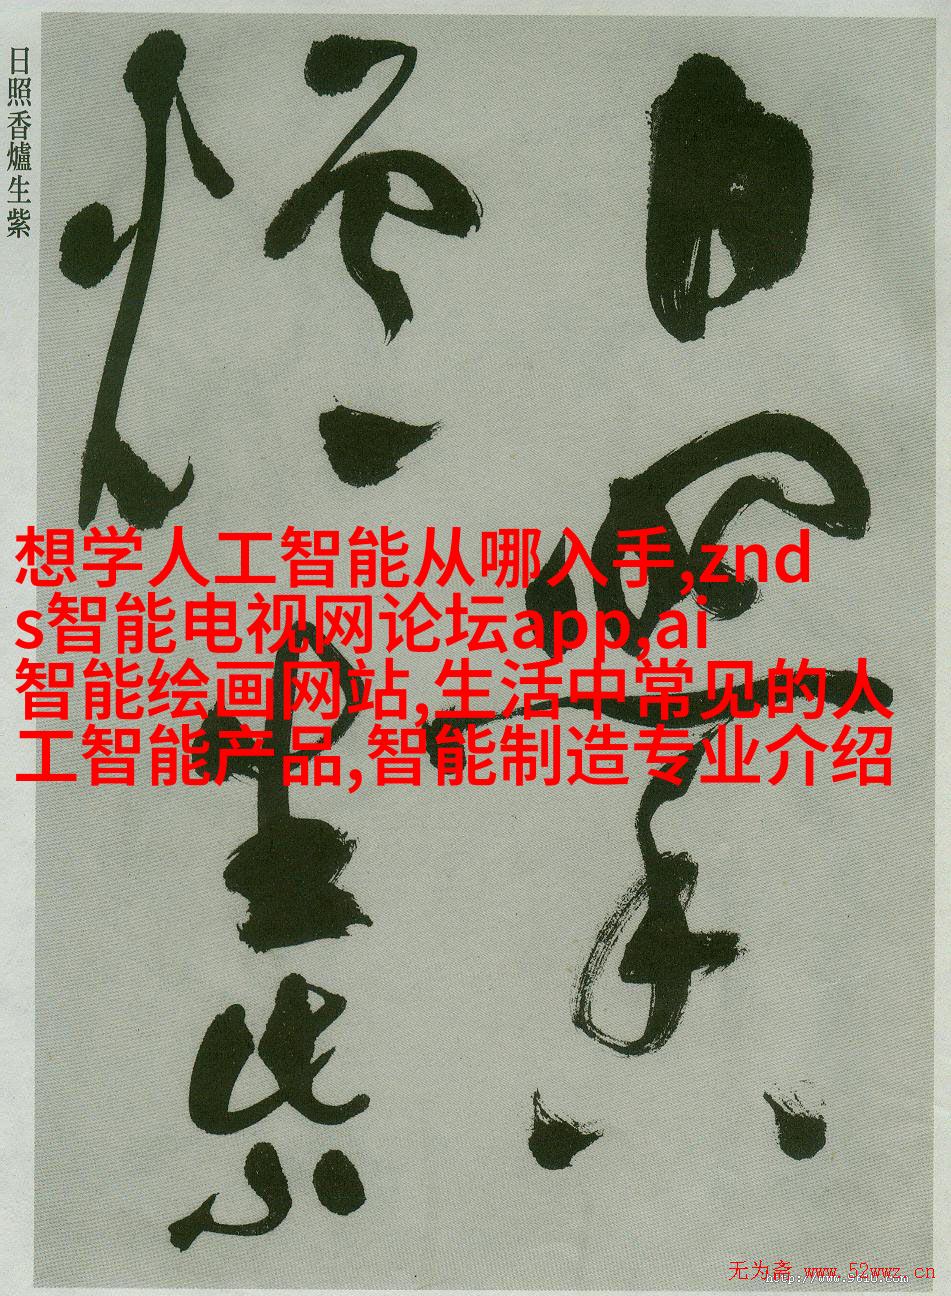 日照香爐生紫
日照香
爐生紫
想学人工智能从哪入手,znd
s智能电视网论坛app,ai
智能绘画网站,生活中常见的人
工智能产品,智能制造专业介绍
无为斋 www.52wwz.cn
http://www.9610.com